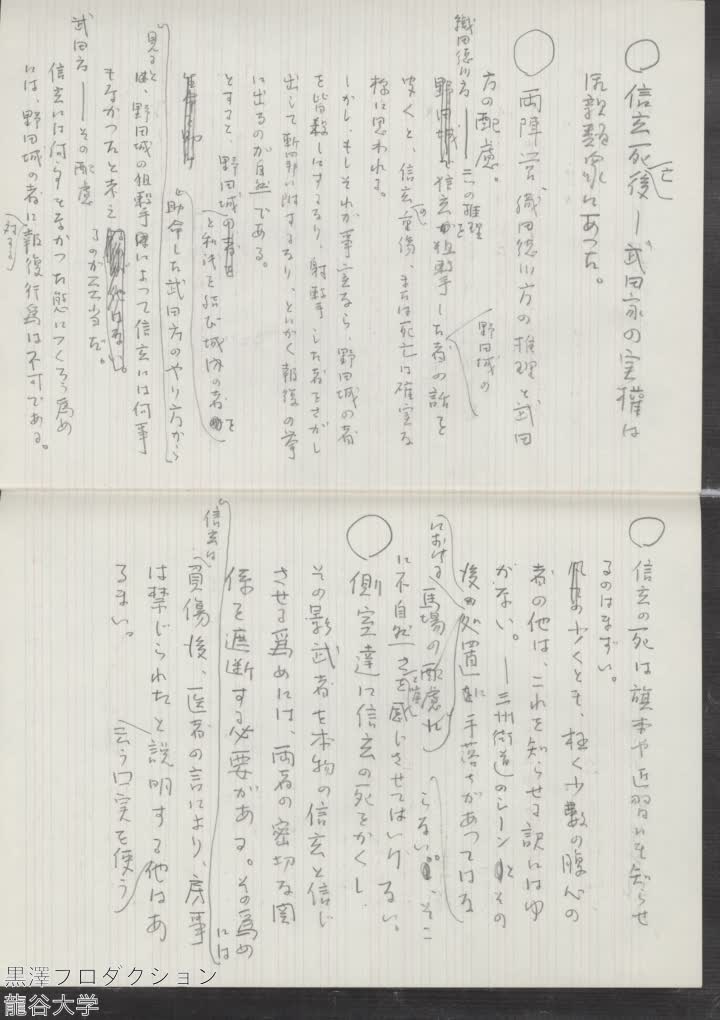 ○ 信玄死後(亡)―武田家の実権は
尻親類衆にあつた。
○ 両陣営、織田徳川方の推理と武田
方の配慮。
織田徳川方――この推理
野田城の
信玄を狙撃した者の話を
聞くと、信玄の重傷、または死亡は確実な
様に思われる。
しかし、もしそれが事実なら、野田城の者
を皆殺しにするなり、射撃した者をさがし
出して斬罪に処するなり、とにかく報復の挙
に出るのが自然である。
とすると、野田城の者
と和議を結び城内の者を
助命した武田方のやり方から
見ると、野田城の狙撃手によつて信玄には何事
もなかつたと考えるのが至当だ。
武田方――その配慮
信玄には何事もなかつた態につくろう為め
には、野田城の者に対する報復行為は不可である。
○ 信玄の死は旗本や近習にも知らせ
るのはまずい。
少くとも、極く少数の腹心の
者の他は、これを知らせる訳にはゆ
かない。――三州街道のシーンとその
後の処置に手落ちがあつてはな
らない。そこ
における馬場の配慮
に不自然さを感じさせてはいけない。
○ 側室達に信玄の死をかくし
その影武者を本物の信玄と信じ
させる為めには、両者の密切な関
係を遮断する必要がある。その為めには
信玄は
負傷後、医者の言により、房事
は禁じられたと説明する他はあ
るまい。
云う口実を使う
黒澤プロダクション
龍谷大学